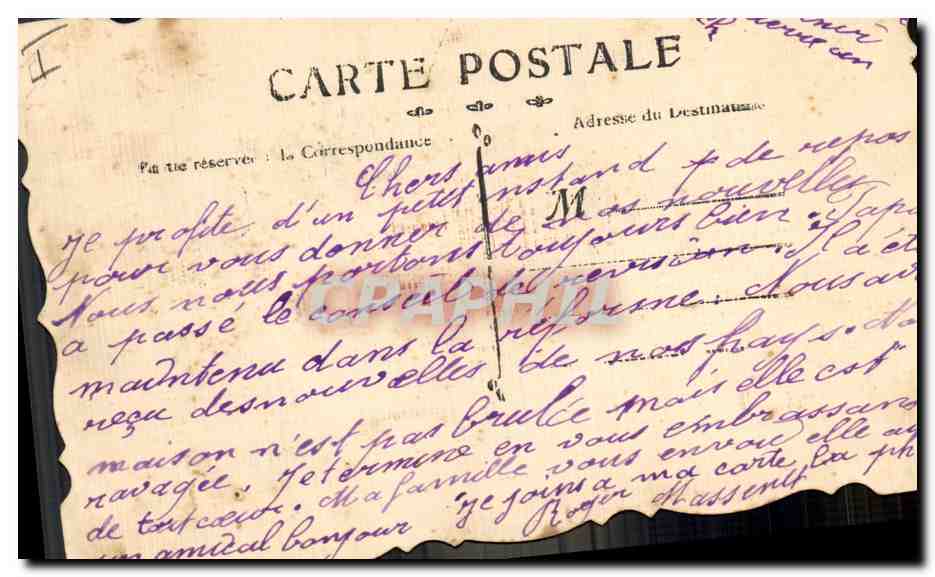 CARTE POSTALE
Partie réservée à la Correspondance
Adresse du Destinataire
M
Chers amis
Je profite d'un petit instand de repos
pour vous donner de nos nouvelles
Nous nous portons toujours bien. Papa
a passé le conseil de revision. Il a été
maintenu dans la réforme. Nous av
reçu des nouvelles de nos pays. No
maison n'est pas brulée mais elle est
ravagée. Je termine en vous embrassans
de tout cœur. Ma famille vous envoi elle au
un amical bonjour Je joins a ma carte la ph
Roger
CPAPHIL